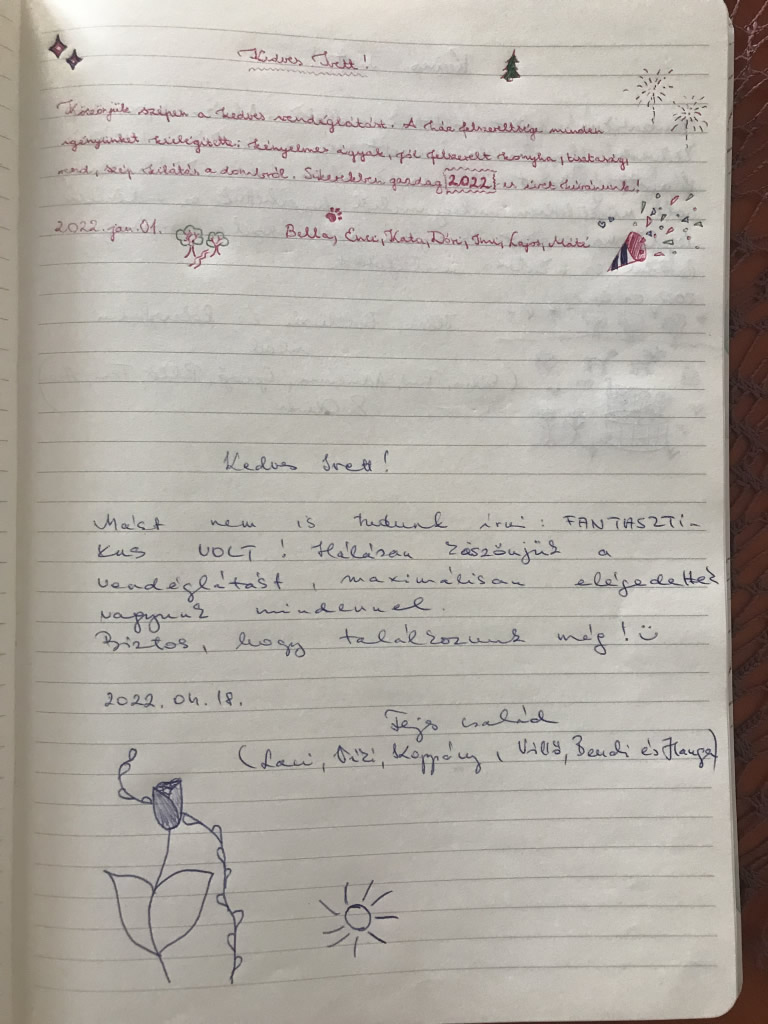 Kedves Ivett!
Köszönjük szépen a kedves vendéglátást. A ház felszereltsége minden
igényünket kielégítette: kényelmes ágyak, jól felszerelt konyha, tisztaság,
rend, szép kilátás a dombról. Sikerekben gazdag 2022 -es évet kívánunk!
2022. jan. 01.
Bella, Enci, Kata, Dóri, Imi, Lajos, Máté
Kedves Ivett!
Mást nem is tudunk írni: FANTASZTI-
KUS VOLT! Hálásan köszönjük a
vendéglátást, maximálisan elégedettek
vagyunk mindennel.
Biztos, hogy találkozunk még! :)
2022. 04. 18.
család
(Laci, Vizi, Koppány, Bendi és Hanga)